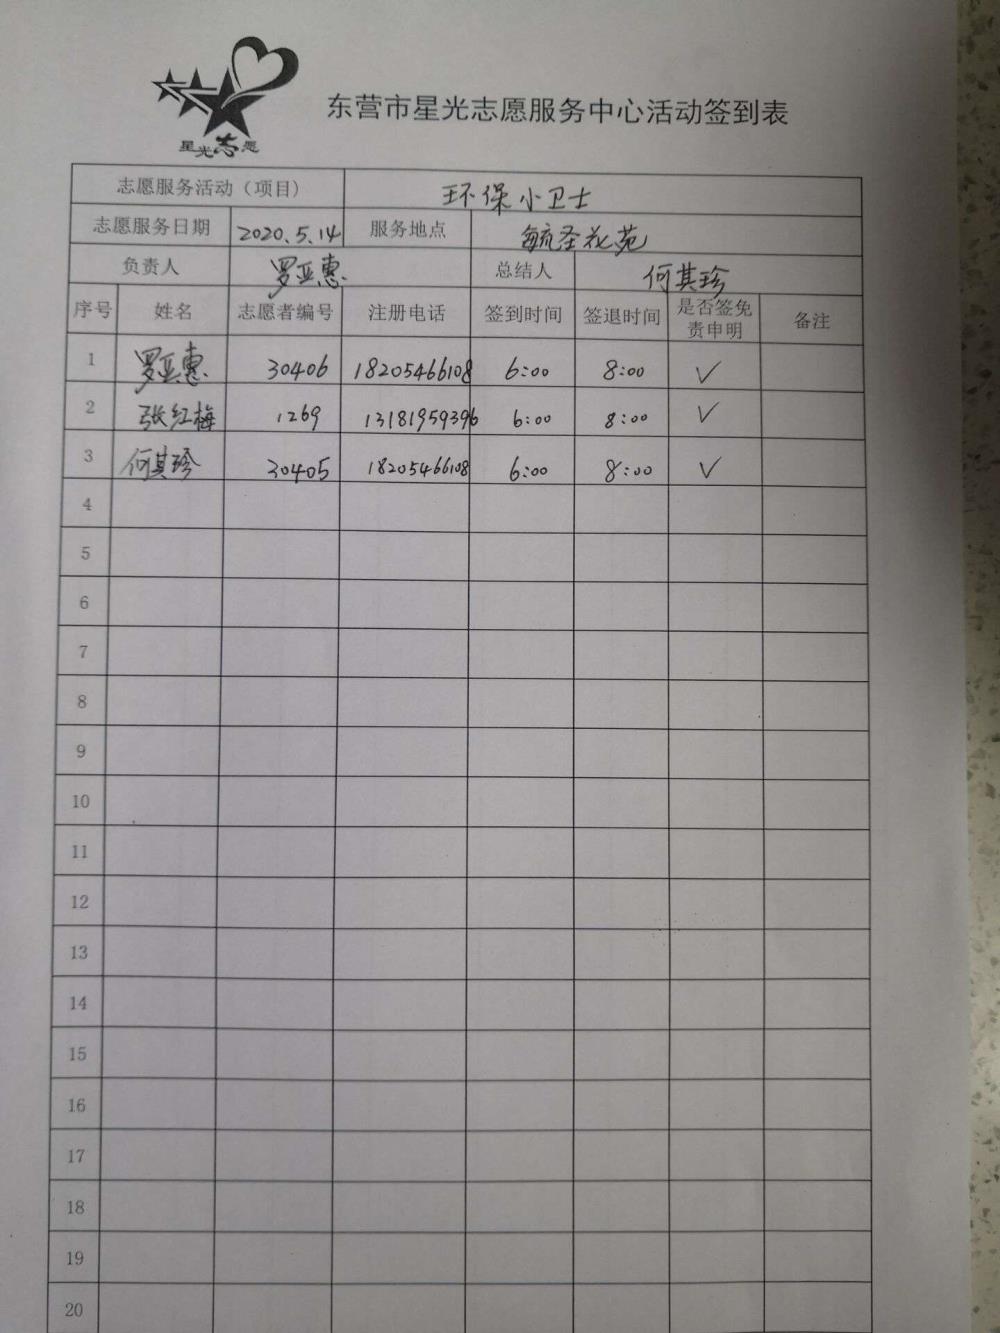 星光志愿
东营市星光志愿服务中心活动签到表
志愿服务活动（项目） 环保小卫士
志愿服务日期 2020.5.14 服务地点 毓圣花苑
负责人 罗亚惠 总结人 何其珍
序号 姓名 志愿者编号 注册电话 签到时间 签退时间 是否签免责申明 备注
1 罗亚惠 30406 18205466108 6:00 8:00 ✓
2 张红梅 1269 13181959396 6:00 8:00 ✓
3 何其珍 30405 18205466108 6:00 8:00 ✓
4
5
6
7
8
9
10
11
12
13
14
15
16
17
18
19
20